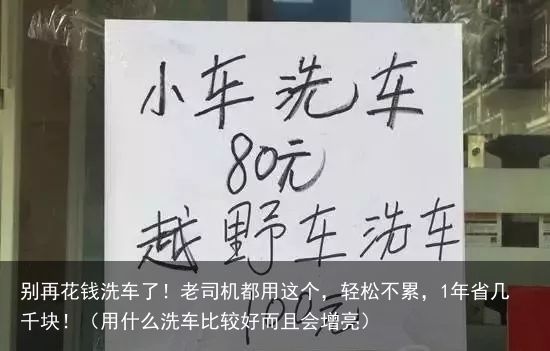 小车洗车
80元
越野车洗车
100元
别再花钱洗车了！老司机都用这个，轻松不累，1年省几
千块！（用什么洗车比较好而且会增亮）